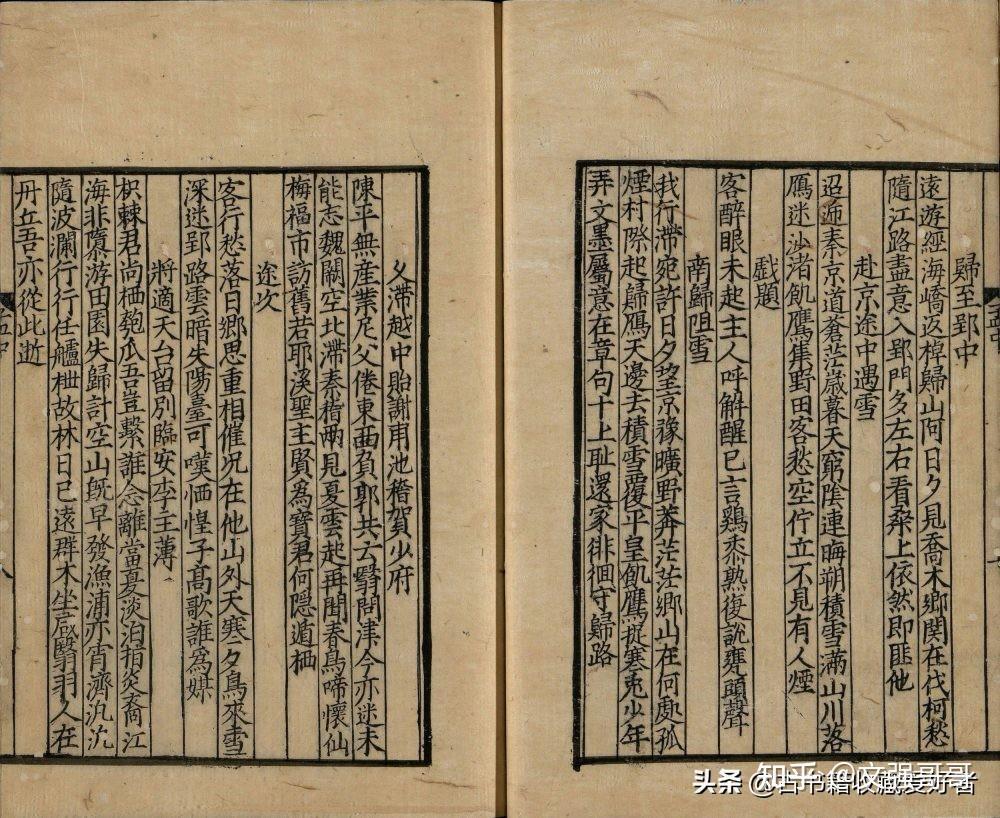 歸至郢中
遠遊經海嶠返棹歸山阿日夕見喬木鄉関在伐柯愁
隨江路盡意入郢門多左右看桑土依然即匪他
赴京途中遇雪
迢遞秦京道蒼茫歲暮天窮陰連晦朔積雪滿山川落
鴈迷沙渚飢鷹集野田客愁空佇立不見有人煙
戲題
客醉眼未起主人呼解酲已言鷄黍熟復說甕頭聲
南歸阻雪
我行滯宛許日夕望京豫曠野莽茫茫鄉山在何處孤
煙村際起歸鴈天邊去積雪覆平皐飢鷹捉寒兎少年
弄文墨屬意在章句十上耻還家徘徊守歸路
久滯越中貽謝甫池稽賀少府
陳平無産業尼父倦東西負郭共云翳問津今亦迷未
能忘魏闕空北滯秦稽兩見夏雲起再聞春鳥啼懷仙
梅福市訪舊若耶溪聖主賢為寶君何隱遁栖
途次
客行愁落日鄉思重相催况在他山外天寒夕鳥來雪
深迷郢路雲暗失陽臺可嘆恓惶子高歌誰為媒
將適天台留別臨安李主薄
枳棘君尚栖匏瓜吾豈繫誰念離當夏淡泊指炎裔江
海非隳游田園失歸計空山旣早發漁浦亦宵濟汎汎
隨波瀾行行任艫枻故林日已遠群木坐成翳羽人在
丹丘吾亦從此逝
五中
八
头条 @古书籍收藏爱好者
知乎 @文强哥哥